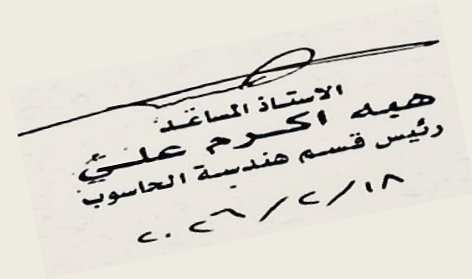 الاستاذ المساعد
هبه اكرم علي
رئيس قسم هندسة الحاسوب
٢٠٢٦/٢/١٨